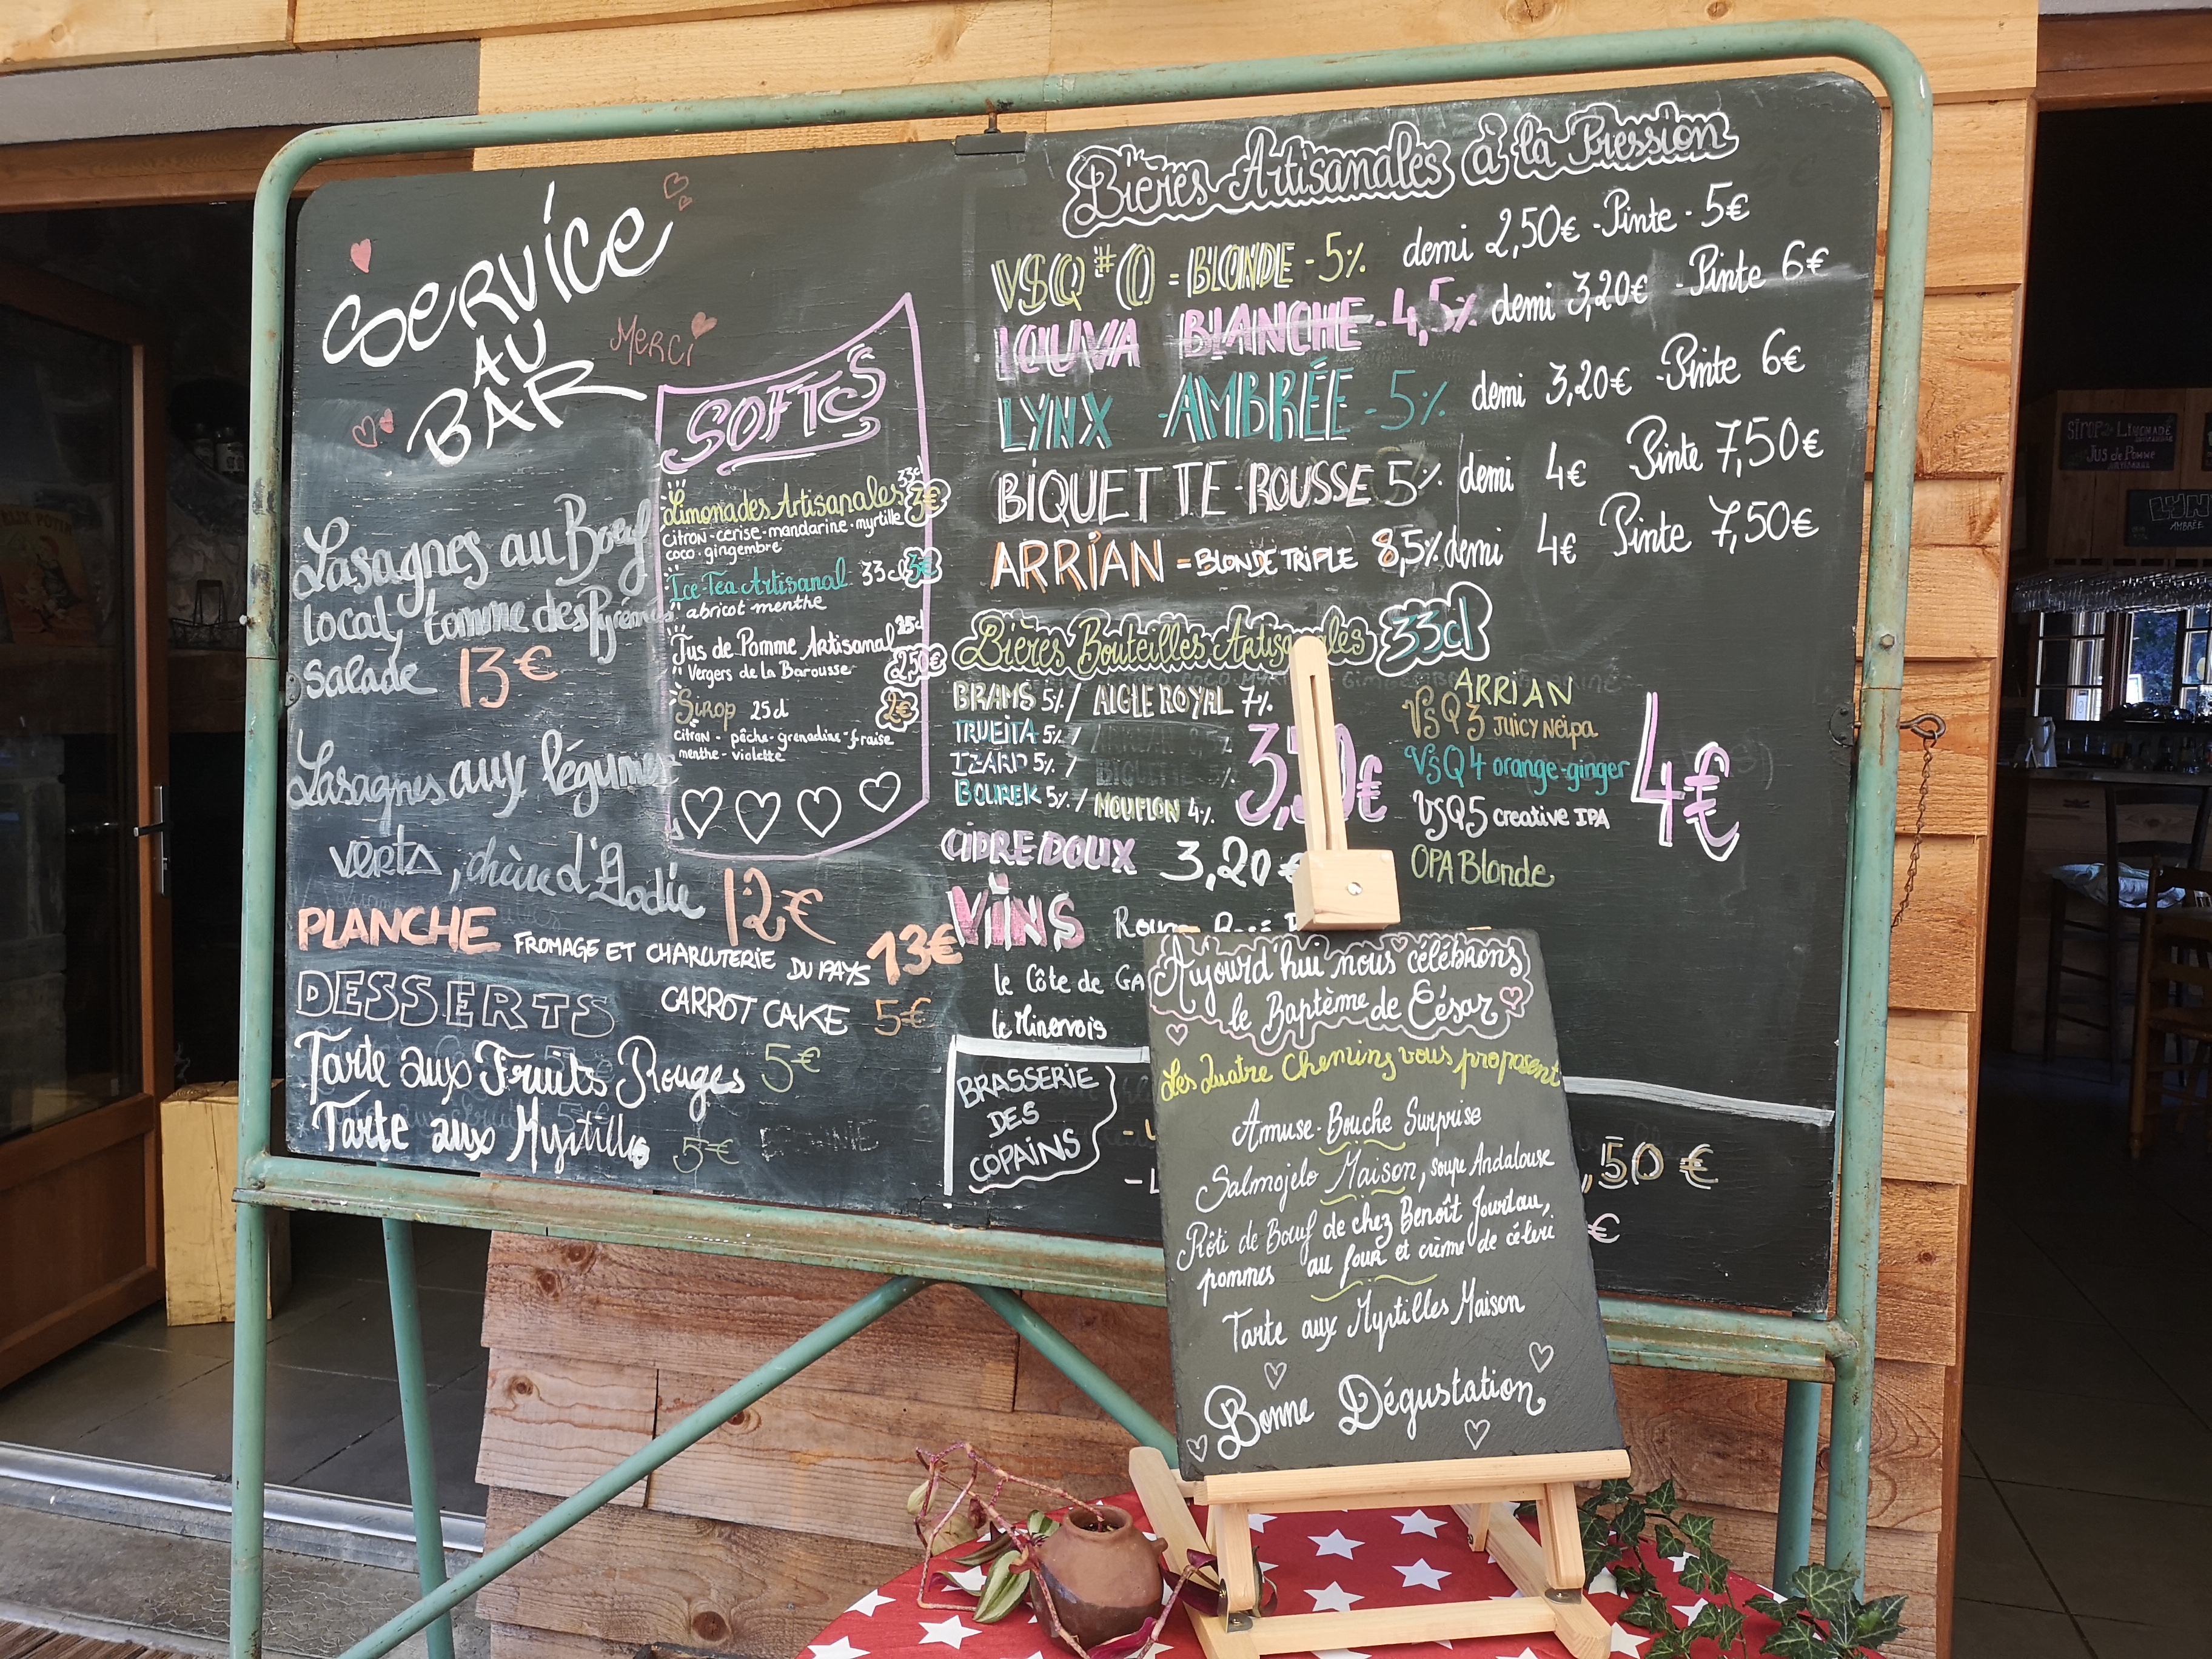 SERVICE
AU
BAR
MERCI
Lasagnes au Boeuf
local, tomme des Pyrénées
salade 13€
Lasagnes aux légumes
verts, chèvre d'Elodie 12€
PLANCHE FROMAGE ET CHARCUTERIE DU PAYS 13€
DESSERTS CARROT CAKE 5€
Tarte aux Fruits Rouges 5€
Tarte aux Myrtilles 5€
SOFTS
Limonades Artisanales 33cl 3€
citron - cerise - mandarine - myrtille
coco - gingembre
Ice-Tea Artisanal 33cl 3€
abricot menthe
Jus de Pomme Artisanal 25cl
Vergers de la Barousse 2,50€
Sirop 25cl 2€
citron - pêche - grenadine - fraise
menthe - violette
Bières Artisanales à la Pression
VSQ#0 = BLONDE - 5% demi 2,50€ - Pinte - 5€
LOUVA BLANCHE - 4,5% demi 3,20€ - Pinte 6€
LYNX - AMBRÉE - 5% demi 3,20€ - Pinte 6€
BIQUETTE - ROUSSE 5% demi 4€ Pinte 7,50€
ARRIAN = BLONDE TRIPLE 8,5% demi 4€ Pinte 7,50€
Bières Bouteilles Artisanales 33cl
BRAMS 5% / AIGLE ROYAL 7%
TRUEITA 5% /
IZARD 5% /
BOUREK 5% / MOUFLON 4%
ARRIAN
VSQ3 JUICY NEIPA
VSQ4 orange-ginger
VSQ5 creative IPA
OPA Blonde
4€
CIDRE DOUX 3,20€
VINS
le Côte de GA
le Minervois
BRASSERIE
DES
COPAINS
,50€
€
Aujourd'hui nous célébrons
le Baptème de César
Les Quatre Chemins vous proposent
Amuse-Bouche Surprise
Salmojelo Maison, soupe Andalouse
Rôti de Boeuf de chez Benoît
pommes au four et crème de céleri
Tarte aux Myrtilles Maison
Bonne Dégustation
SIROP LIMONADE
JUS de POMME
LYNX
AMBRÉE